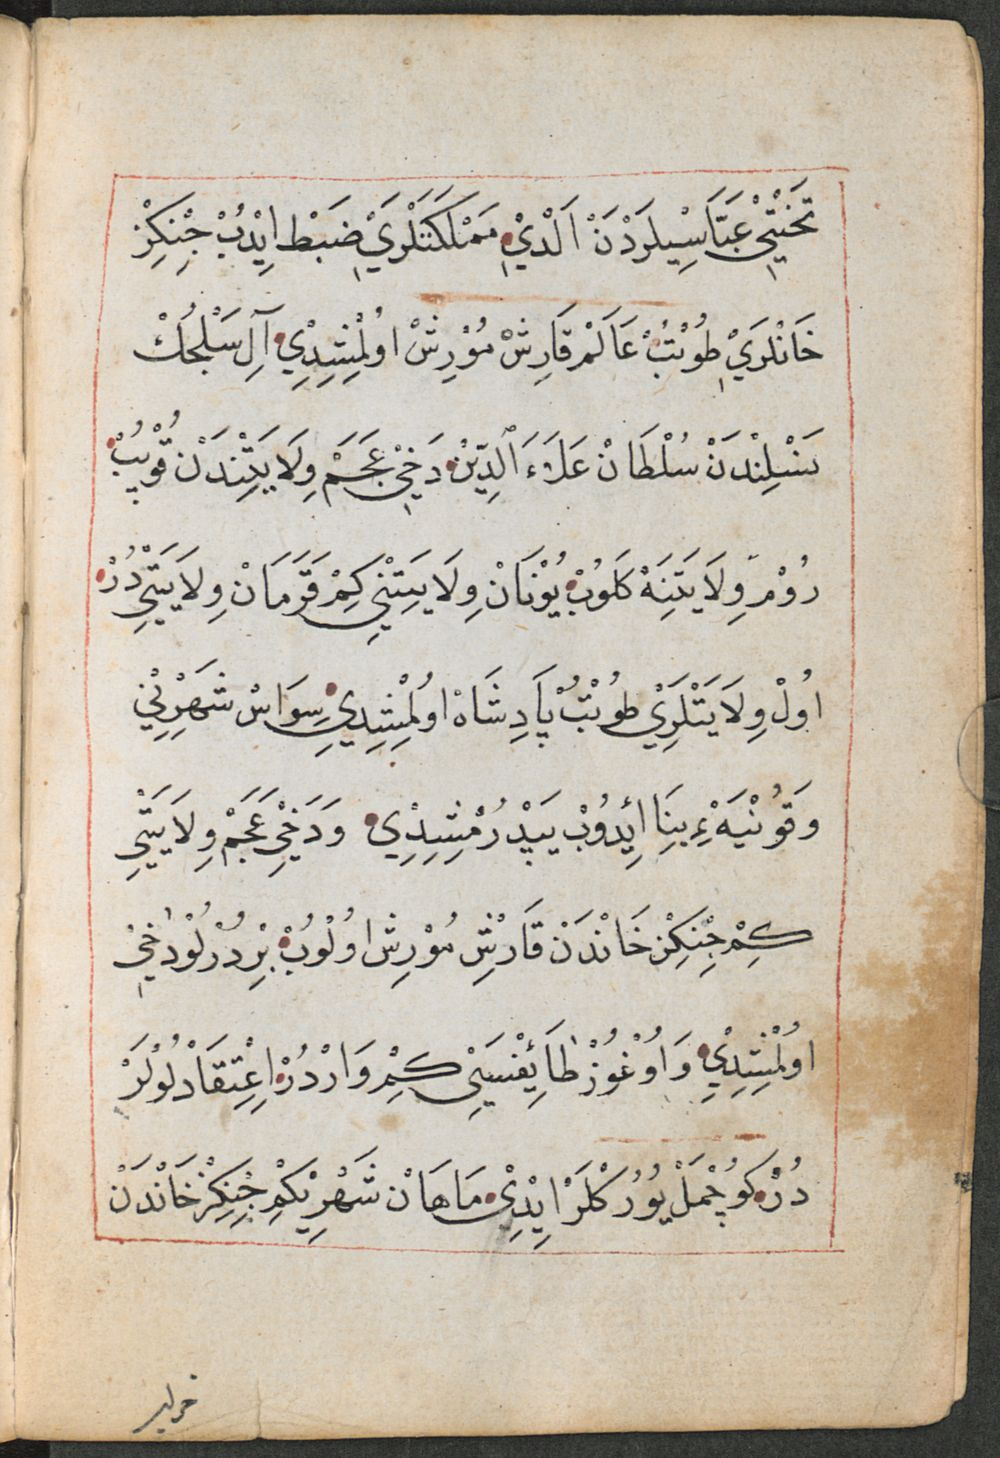 تَخْتِنِي عَبَّاسِيلَرْدَنْ اَلْدِيْ مَمْلَكَتْلَرِيْ ضَبْط اِيْدُبْ جِنْكِزْ
خَانْلَرِيْ طُوْتُبْ عَالَمْ قَارِشْ مُوْرِشْ اوُلْمِشِدِيْ آلِ سَلْجُكْ
نَسْلِنْدَنْ سُلْطَانْ عَلَاءَ الدِّيْن دَخِيْ عَجَمْ وِلَايَتِنْدَنْ قُوْپُبْ
رُوْمْ وِلَايَتِنَهْ كَلوُبْ يُوْنَانْ وِلَايَتِنِيْ كِمْ قَرَمَانْ وِلَايَتِيْ دُرْ
اوُلْ وِلَايَتْلَرِيْ طُوْتُبْ پَادِشَاهْ اوُلْمِشِدِيْ سِوَاسْ شَهْرِنِيْ
وَقُوْنْيَهْءِ بِنَا اِيْدُوبْ يَپْدُرْمِشِدِيْ وَدَخِيْ عَجَمْ وِلَايَتِيْ
كِمْ جِنْكِزْ خَانْدَنْ قَارْشِ مُوْرِشْ اوُلُوْبْ بِرْ دُرْلُوْ دَخِيْ
اوُلْمِشِدِيْ وَاوُغُوْزْ طَائِفَسِيْ كِمْ وَارْدُرْ اِعْتِقَادْلُولَرْ
دُرْ كُوْچْمَلْ يُوْرُكْلَرْ اِيْدِيْ مَاهَانْ شَهْرِيْكِمْ جِنْكِزْ خَانْدَنْ